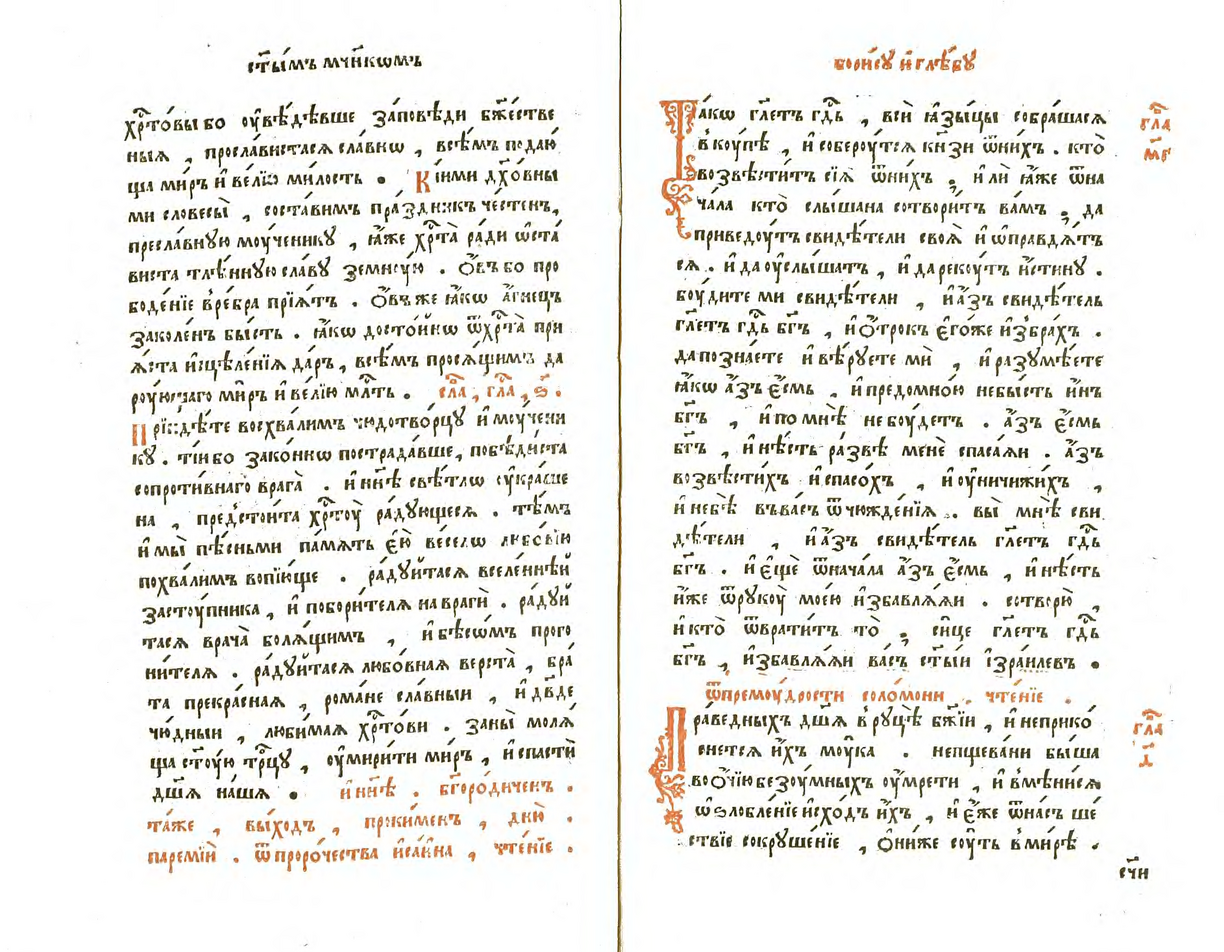 ст҃ы́мъ мч҃нкѡмъ
хрⷭ҇то́вы бо оу҆вѣ́дѣвше за́повѣди бж҃е́стве
ныѧ , просла́вистасѧ сла́внѡ , всѣ́мъ подаю́
ща ми́ръ и҆ ве́лїю ми́лость .  Кі́ими дх҃о́вны
ми словесы̀ , соста́вимъ пра́здникъ че́стенъ,
пресла́вную моу́ченику , ꙗ҆́же хрⷭ҇та̀ ради ѡ҆ста́
виста тлѣ́нную сла́ву земну́ю . О҆́въ бо про
боде́нїе в̾ре́бра прїѧ́тъ . О҆́въ же ꙗ҆́кѡ а҆́гнецъ
заколе́нъ бы́сть . ꙗ҆́кѡ досто́йнѡ ѿхрⷭ҇та̀ при
ѧ́ста и҆сцѣле́нїѧ да́ръ , всѣ́мъ просѧ́щимъ да
роу́ющаго ми́ръ и҆ ве́лїю млⷭ҇ть .  сла́ , гла́ , ѕ҃ .
Прїидѣ́те восхва́лимъ чюдотво́рцу и҆ моу́чени
ку . ті́и бо зако́ннѡ пострада́вше, побѣди́ста
сопроти́внаго врага̀ . и҆ нн҃ѣ свѣ́тлѡ оу҆кра́ше
на , предстои́та хрⷭ҇тоу̀ ра́дующесѧ . тѣ́мъ
и҆ мы̀ пѣ́сньми па́мѧть є҆ю̀ ве́селѡ любо́вїю
похва́лимъ вопїю́ще . ра́дуйтасѧ вселе́ннѣй
засту́пника , и҆ побори́телѧ на врагѝ . ра́дуй
тасѧ врача̀ болѧ́щимъ , и҆ бѣсѡ́мъ прого
ни́телѧ . ра́дуйтасѧ любо́внаѧ верста̀ , бра́
та прекра́снаѧ , рома́не сла́вныи , и҆ дв҃де
чю́дныи , люби́маѧ хрⷭ҇то́ви . за ны̀ молѧ́
ща ст҃у́ю трⷪ҇цу , оу҆мири́ти ми́ръ , и҆ спастѝ
дш҃а на́шѧ .  и҆ нн҃ѣ . бг҃оро́диченъ .
та́же , вы́ходъ , проки́менъ , дню̀ .
пареми́и . ѿ проро́чества и҆са́їина , чте́нїе .
бори́су и҆ глѣ́бу
Та́кѡ гл҃етъ гдⷭ҇ь , вси̑ ꙗ҆зы́цы собра́шасѧ
в̾коу́пѣ , и҆ собероу́тсѧ кн҃зи ѿни́хъ . кто̀
возвѣсти́тъ сїѧ̑ ѿни́хъ , и҆ли̑ ꙗ҆́же ѿна
ча́ла кто̀ слы́шана сотвори́тъ ва́мъ , да
приведоу́тъ свидѣ́тели своѧ̑ и҆ ѡ҆правдѧ́тъ
сѧ . и҆ да оу҆слы́шатъ , и҆ да рекоу́тъ и҆́стину .
боу́дите ми свидѣ́тели , и҆ а҆́зъ свидѣ́тель
гл҃етъ гдⷭ҇ь бг҃ъ , и҆ о҆́трокъ є҆го́же и҆збра́хъ .
да позна́ете и҆ вѣ́руете мѝ , и҆ разумѣ́ете
ꙗ҆́кѡ а҆́зъ є҆́смь , и҆ предомно́ю небы́сть и҆́нъ
бг҃ъ , и҆ по мнѣ̀ не боу́детъ . а҆́зъ є҆́смь
бг҃ъ , и҆ нѣ́сть ра́звѣ менѐ спаса́ѧи . а҆́зъ
возвѣсти́хъ и҆ спасо́хъ , и҆ оу҆ничижи́хъ ,
и҆ небѣ̀ въ ва́съ ѿчюжде́нїѧ . вы̀ мнѣ̀ сви
дѣ́тели , и҆ а҆́зъ свидѣ́тель гл҃етъ гдⷭ҇ь
бг҃ъ . и҆ є҆щѐ ѿнача́ла а҆́зъ є҆́смь , и҆ нѣ́сть
и҆́же ѿрукоу̀ моє́ю и҆збавлѧ́ѧи . сотворю̀ ,
и҆ кто̀ ѿврати́тъ то̀ , си́це гл҃етъ гдⷭ҇ь
бг҃ъ , и҆збавлѧ́ѧи ва́съ ст҃ы́и і҆зра́илевъ .
ѿпремоу́дрости соломо́ни . чте́нїе .
Пра́ведныхъ дш҃ѧ в̾руцѣ̀ бж҃їи , и҆ неприко́
снетсѧ и҆́хъ моу́ка . непщева́ни бы́ша
во О҆чїю̀ безоу́мныхъ оу҆мре́ти , и҆ в̾мѣни́сѧ
ѡ҆ѕлобле́нїе и҆схо́дъ и҆́хъ , и҆ є҆́же ѿна́съ ше́
ствїе сокруше́нїе , О҆ни́же соу́ть в̾ми́рѣ .
гла́
м҃г
гла́
г҃
єч҃и